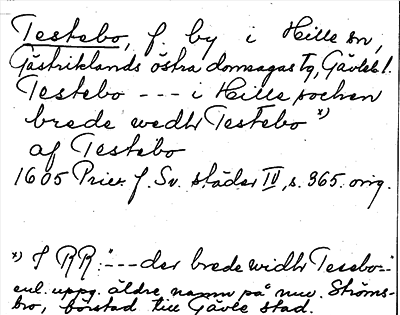 Testebo, f. by i Hille sn,
Gästriklands östra domsagas Tg, Gävleb. l.
Testebo --- i Hille sochen
brede wedhr Testebo x)
af Testebo
1605 Priv. f. Sv. städer IV, s. 365. orig.
x) I RR: "--- der brede widhr Tesebo--"
enl. uppg. äldre namn på nuv. Ströms-
bro, förstad till Gävle stad.